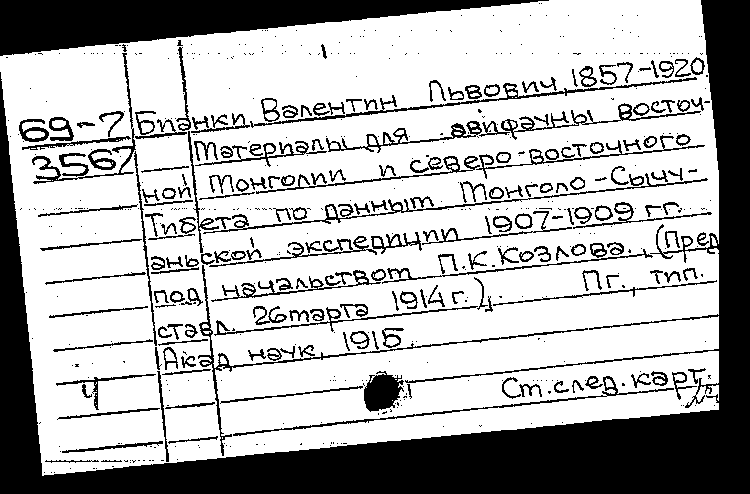 69-7
3567
Бианки, Валентин Львович, 1857-1920
Материалы для авифауны восточ-
ной Монголии и северо-восточного
Тибета по данным Монголо-Сычу-
аньской экспедиции 1907-1909 гг.
под начальством П.К.Козлова. (Пред
ставл. 26 марта 1914 г.). Пг., тип.
Акад. наук, 1915.
Ч
Ст.след.карт.